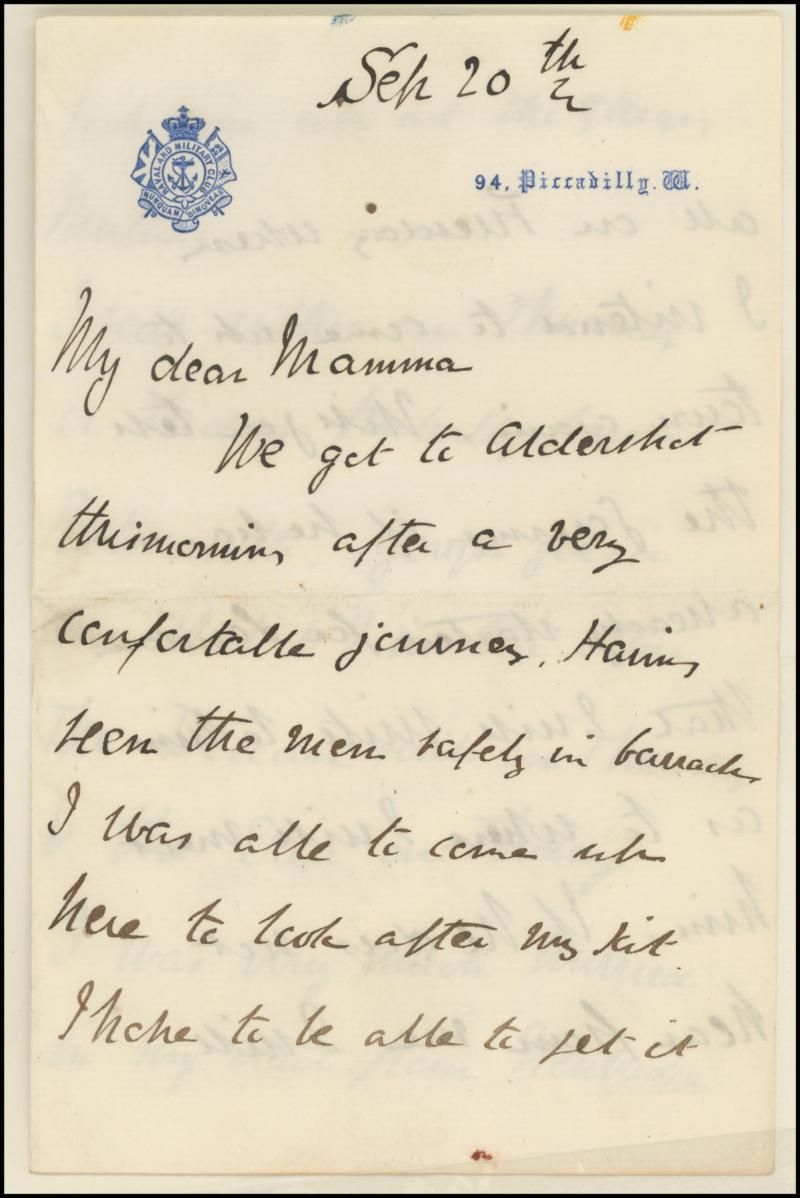 Sep 20th
NAVAL AND MILITARY CLUB
NUNQUAM DIMOVEAS
94, Piccadilly. W.
My dear Mamma
We got to Aldershot
this morning after a very
confortable journey. Having
seen the men safely in barracks
I was able to come up
here to look after my kit.
I hope to be able to get it